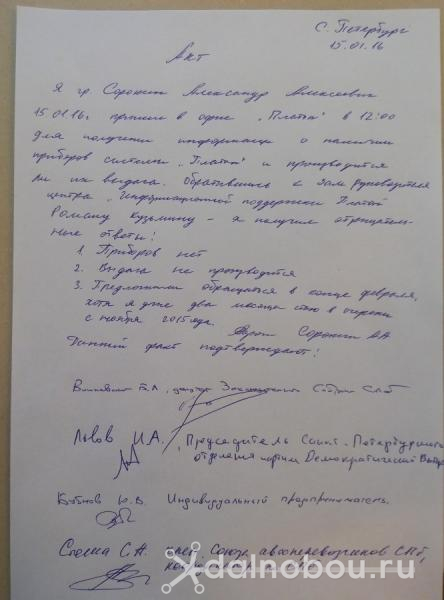 С. Петербург
15.01.16
Акт
Я гр. Сорокин Александр Алексеевич
15.01.16г. пришел в офис "Платон" в 12:00
для получения информации о наличии
приборов системы "Платон" и производится
ли их выдача. Обратившись к зам. руководителя
центра "Информационной поддержки Платон"
Роману Кузьмину - я получил отрицатель-
ные ответы:
1. Приборов нет
2. Выдача не производится
3. Предложили обращаться в конце февраля,
хотя я уже два месяца стою в очереди
с ноября 2015 года.
Сорокин АА
Данный факт подтверждают:
депутат Законодательного Собрания СПб
Львов И.А. Председатель Санкт-Петербургского
отделения партии Демократический Выбор
Бубнов Ю.В. Индивидуальный предприниматель.
С.Н. Союза автоперевозчиков СПб,
dalnobou.ru